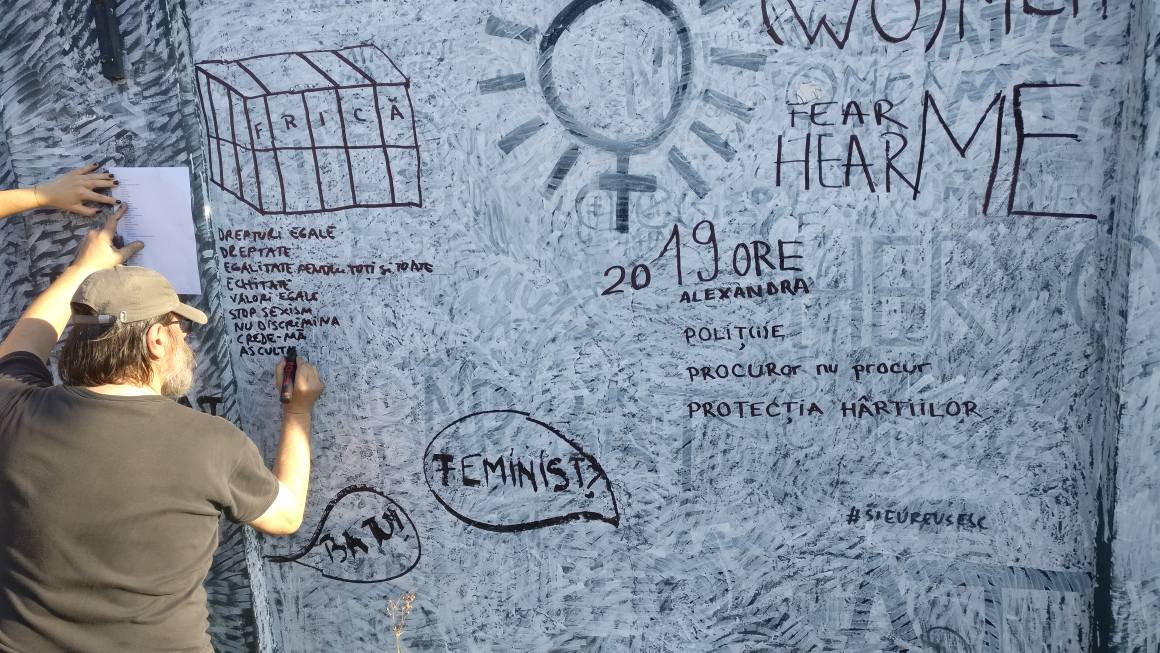 (WO)MEN
FEAR
HEAR ME
FRICĂ
DREPTURI EGALE
DREPTATE
EGALITATE PENTRU TOȚI ȘI TOATE
ECHITATE
VALORI EGALE
STOP SEXISM
NU DISCRIMINA
CREDE-MĂ
ASCULT
2019 ORE
ALEXANDRA
POLIȚ(I)E
PROCUROR nu procur
PROTECȚIA HÂRTIILOR
FEMINIST?
#SIEUREUSESC